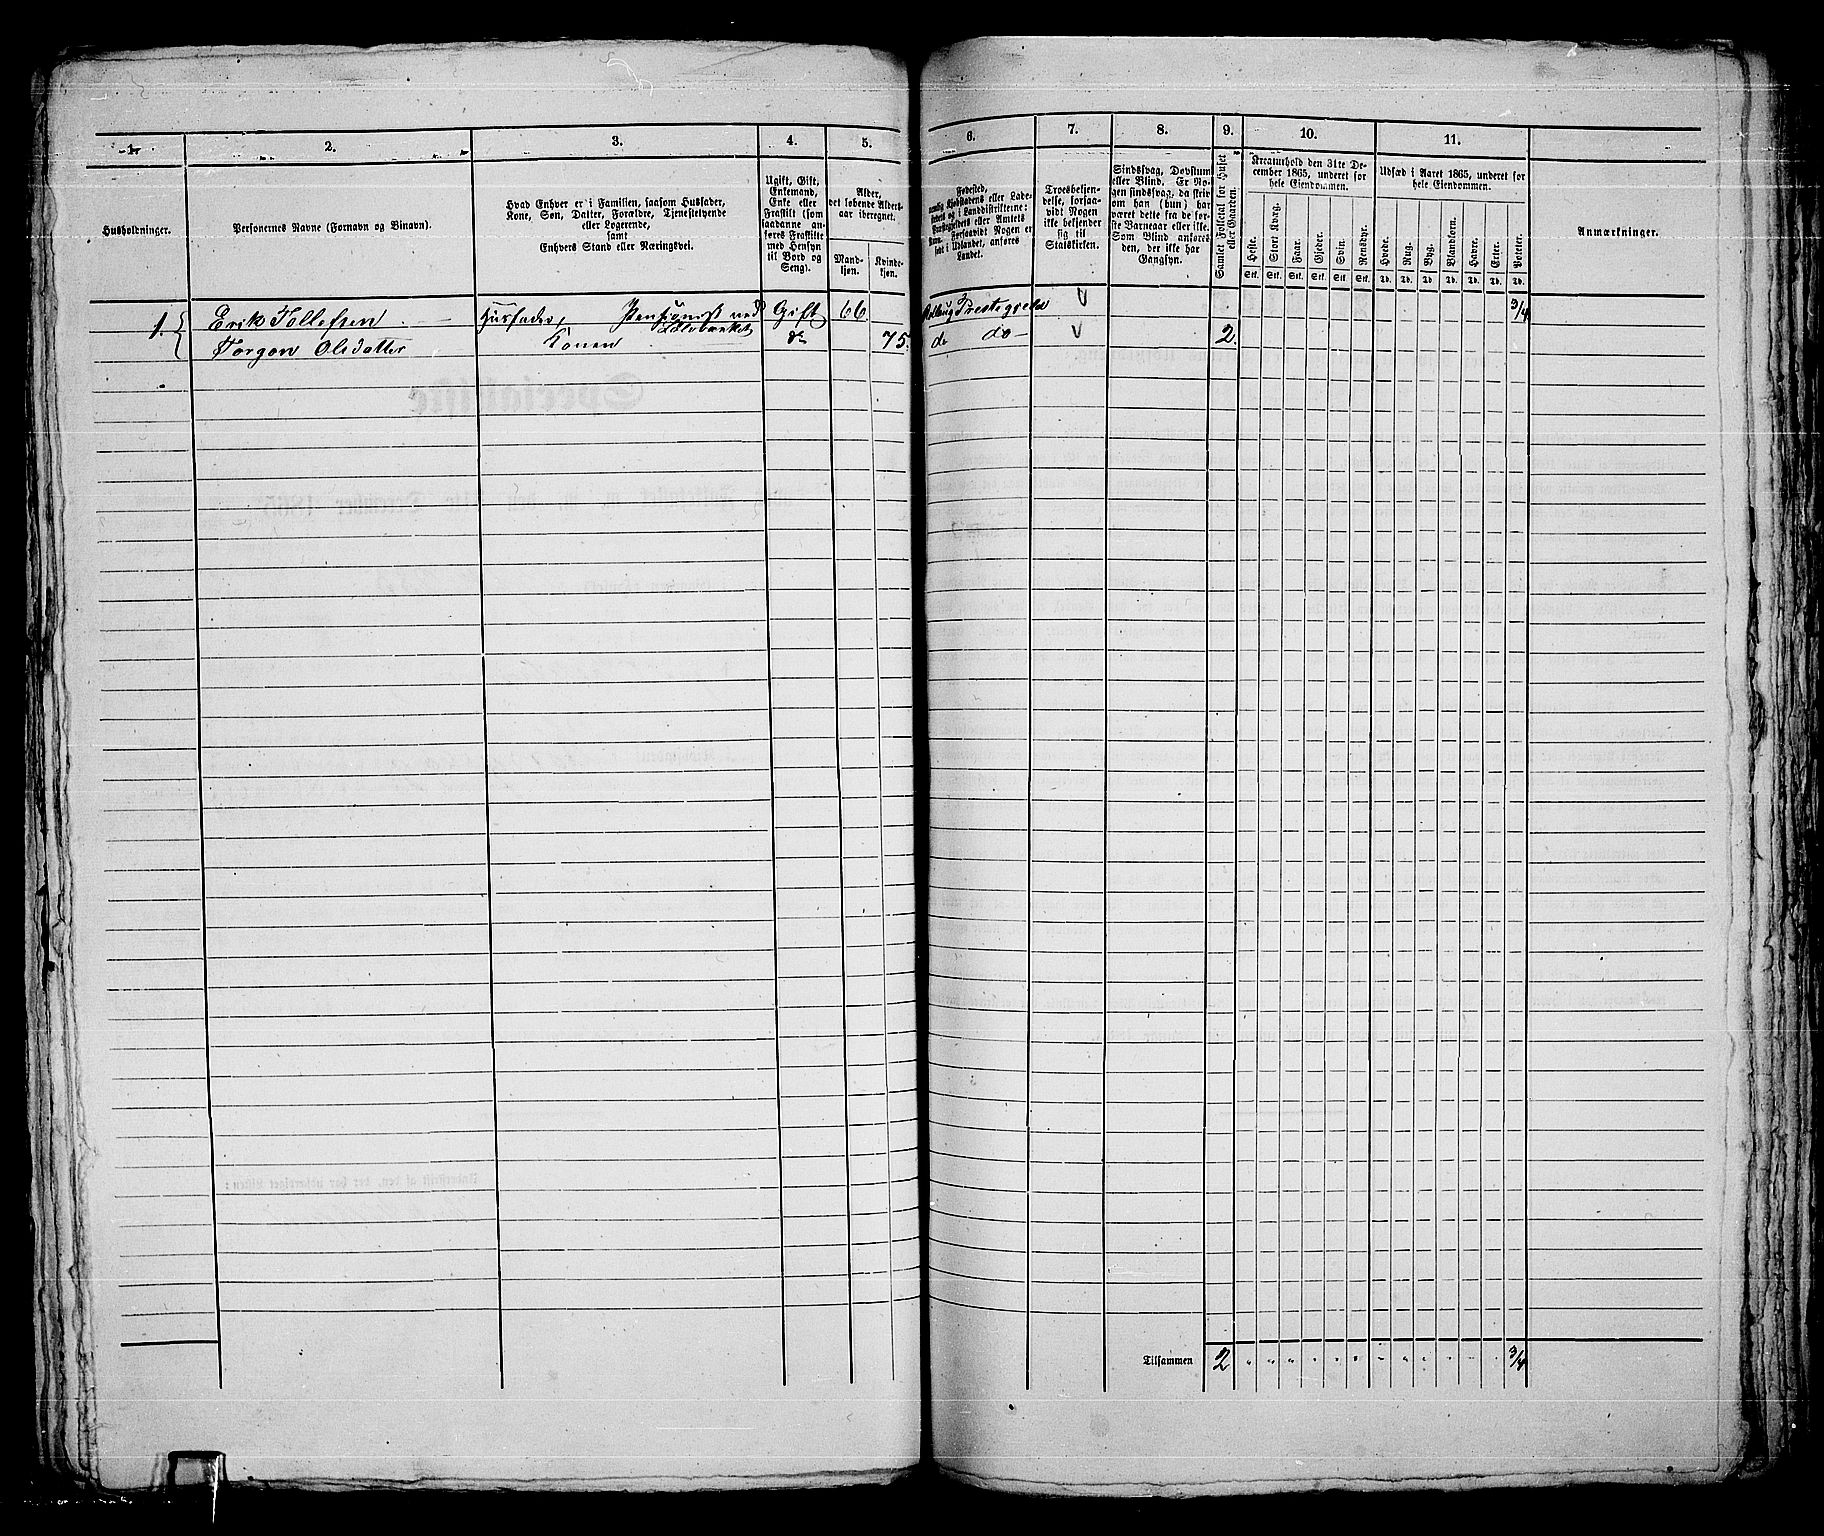 1. 2. 3. 4. 5. 6. 7. 8. 9. 10. 11.
Husholdninger.
Personernes Navne (Fornavn og Binavn).
Hvad Enhver er i Familien, saasom Husfader,
Kone, Søn, Datter, Forældre, Tjenestetyende
eller Logerende,
samt
Enhvers Stand eller Næringsvei.
Ugift, Gift,
Enkemand,
Enke eller
Fraskilt (som
saadanne an-
føres Fraskilte
med Hensyn
til Bord og
Seng).
Alder,
det løbende Alders-
aar iberegnet.
Mand-
kjøn.
Kvinde-
kjøn.
Fødested,
nemlig Kjøbstadens eller Lade-
stedets og i Landdistrikterne:
Præstegjeldets eller Amtets
Navn. Forsaavidt Nogen er
født i Udlandet, anføres
Landet.
Troesbekjen-
delse, forsaa-
vidt Nogen
ikke bekjender
sig til
Statskirken.
Sindssvag, Døvstum
eller Blind. Er No-
gen sindssvag, da skriv
om han (hun) har
været dette fra de før-
ste Barneaar eller ikke.
Som Blind anføres
den, der ikke har
Gangsyn.
Samlet Folketal for Huset
eller Gaarden.
Kreaturhold den 31te De-
cember 1865, underet for
hele Eiendommen.
Heste. Stort Kvæg. Faar. Gjeder. Svin. Rensdyr.
Stk. Stk. Stk. Stk. Stk. Stk.
Udsæd i Aaret 1865, underet for
hele Eiendommen.
Hvede. Rug. Byg. Blandkorn. Havre. Erter. Poteter.
Td. Td. Td. Td. Td. Td. Td.
Anmærkninger.
1. Erik Tollefsen Husfader, Pensionist ved Gift 66 Prestegjeld 3/4
Torgon Olsdatter Konen do 75. do do 2.
Tilsammen 2 " " " " " " " " " " " " 3/4